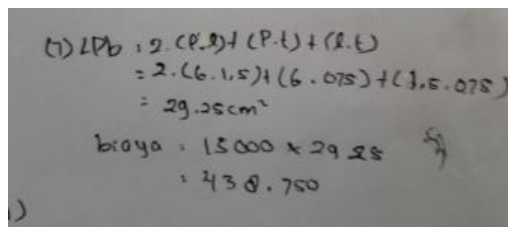 (7) LPb : 2.(P.l)+(P.t)+(l.t)
= 2.(6.1,5)+(6.075)+(1,5.075)
= 29.25cm²
biaya : 15000 x 29 25
: 438.750
)